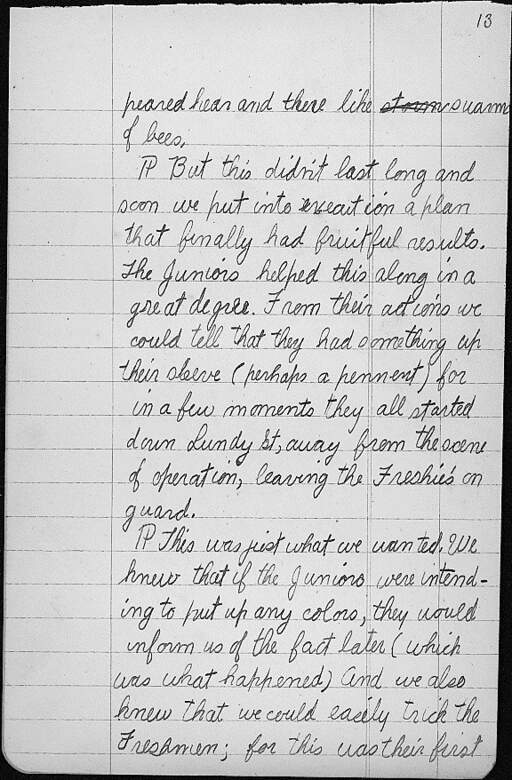 13
peared hear and there like storm swarms
of bees.
P But this didn't last long and
soon we put into execution a plan
that finally had fruitful results.
The Juniors helped this along in a
great degree. From their actions we
could tell that they had something up
their sleeve (perhaps a pennent) for
in a few moments they all started
down Lundy St, away from the scene
of operation, leaving the Freshie's on
guard.
P This was just what we wanted. We
knew that if the Juniors were intend-
ing to put up any colors, they would
inform us of the fact later (which
was what happened) And we also
knew that we could easily trick the
Freshmen; for this was their first